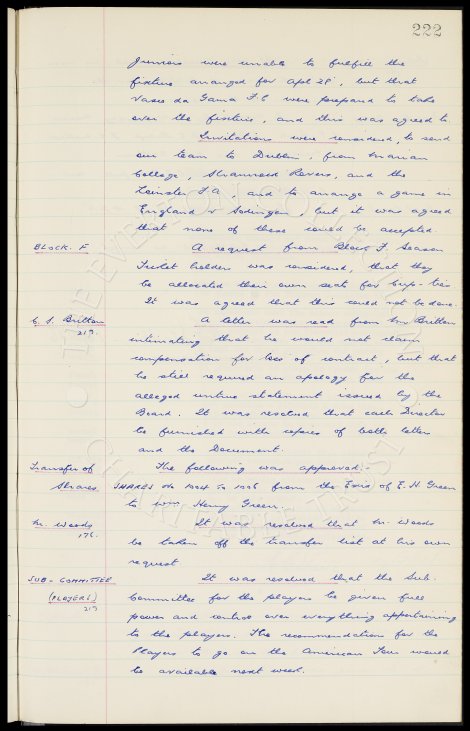 222
Juniors were unable to fulfill the
fixture arranged for Apl 28, but that
Vasco da Gama F C were prepared to take
over the fixture, and this was agreed to.
Invitations were considered, to send
our team to Dublin, from Marian
College, Shamrock Rovers, and the
Leinster F A, and to arrange a game in
England v Sodingen, but it was agreed
that none of these could be accepted.
BLOCK. F. A request from Block F. Season
Ticket holders was considered, that they
be allocated their own seats for Cup-ties
It was agreed that this could not be done.
C. S. Britton A letter was read from Mr Britton
219.
intimating that he would not claim
compensation for loss of contract, but that
he still required an apology for the
alleged untrue statement issued by the
Board. It was resolved that each Director
be furnished with copies of both letter
and the Document.
Transfer of The following was approved:-
Shares SHARES No 1004 to 1006 from the Exors of E. H Green
to Wm Henry Green.
Mr. Woods It was resolved that Mr. Woods
176.
be taken off the transfer list at his own
request
SUB-COMMITTEE It was resolved that the Sub.
(PLAYERS) Committee for the players be given full
219
power and control over everything appertaining
to the players. The recommendations for the
Players to go on the American Tour would
be available next week.